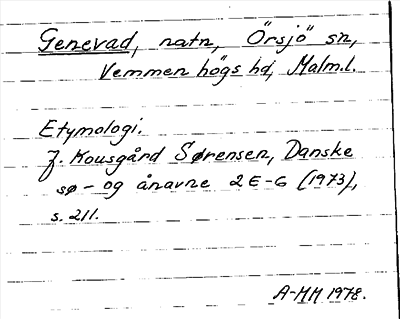 Genevad, natn, Örsjö sn,
Vemmenhögs hd, Malm.l.
Etymologi.
J. Kousgård Sørensen, Danske
sø- og ånavne 2 E-G (1973),
s. 211.
A-MM 1978.